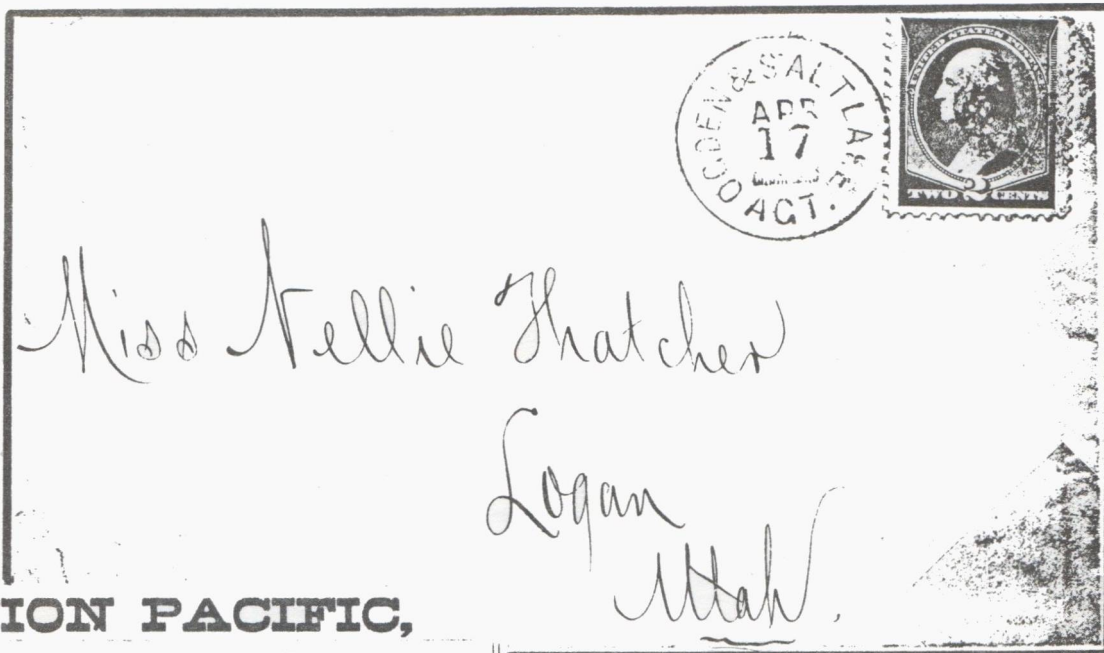 OGDEN & SALT LAKE AGT.
APR
17
UNITED STATES POSTAGE
TWO 2 CENTS
Miss Nellie Thatcher
Logan
Utah.
ION PACIFIC,